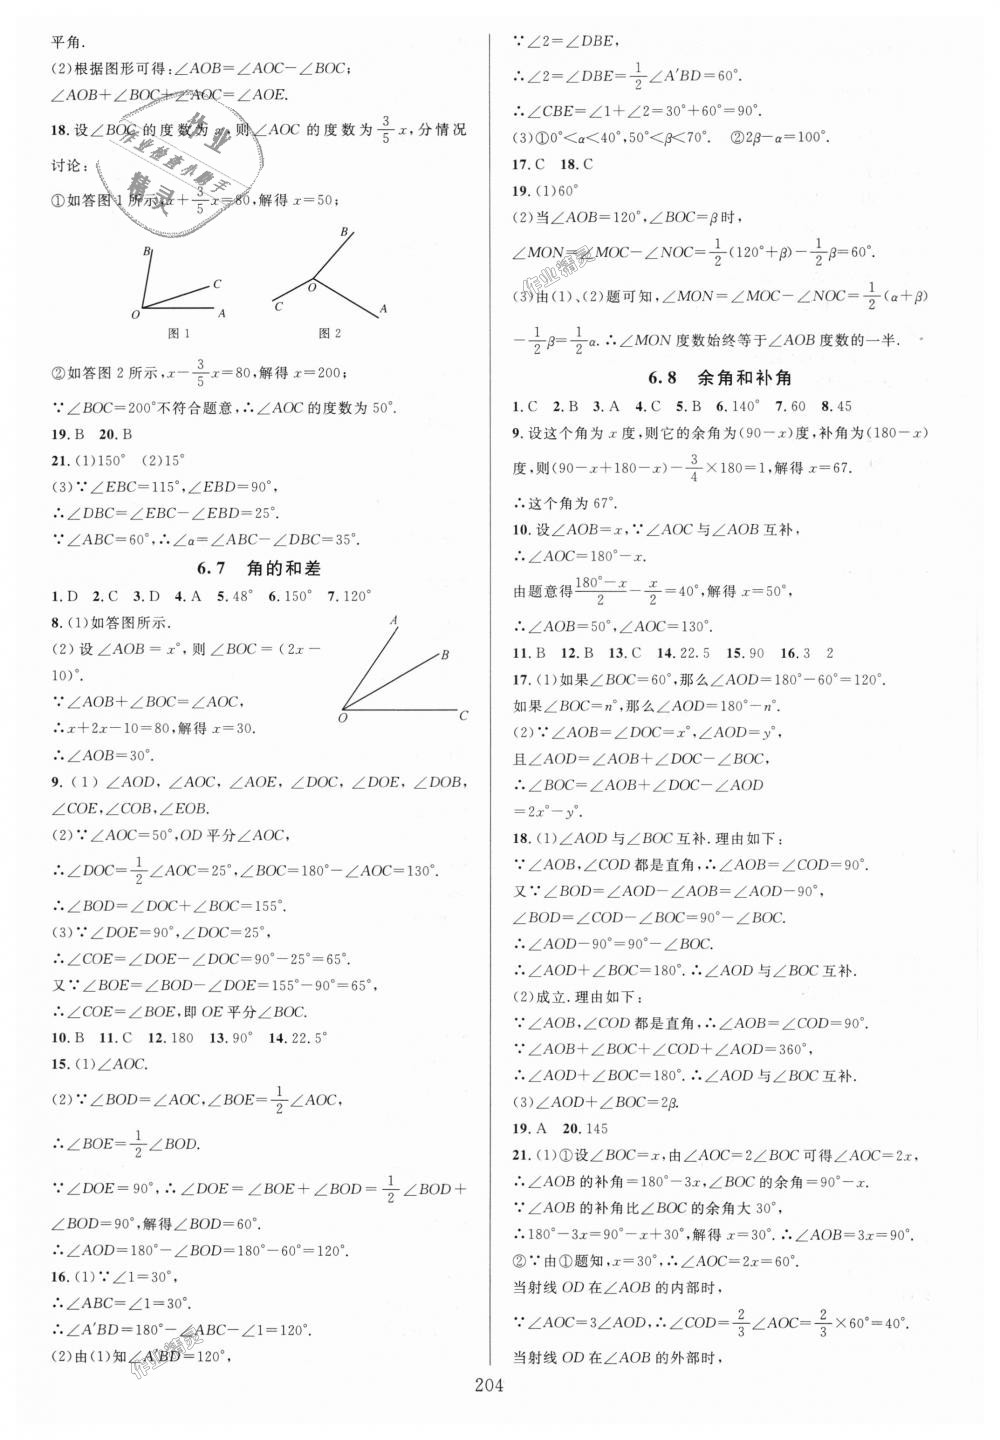 平角.
(2)根据图形可得:∠AOB=∠AOC-∠BOC;
∠AOB+∠BOC+∠AOC=∠AOE.
18.设∠BOC 的度数为 x,则∠AOC 的度数为 3/5 x,分情况
讨论:
①如答图 1 所示,x+3/5 x=80,解得 x=50;
B
C
O
A
图 1
B
O
C
A
图 2
②如答图 2 所示,x-3/5 x=80,解得 x=200;
∵∠BOC=200°不符合题意,∴∠AOC 的度数为 50°.
19.B 20.B
21.(1)150° (2)15°
(3)∵∠EBC=115°,∠EBD=90°,
∴∠DBC=∠EBC-∠EBD=25°.
∵∠ABC=60°,∴∠α=∠ABC-∠DBC=35°.
6.7 角的和差
1.D 2.C 3.D 4.A 5.48° 6.150° 7.120°
8.(1)如答图所示.
(2)设∠AOB=x°,则∠BOC=(2x-
10)°.
∵∠AOB+∠BOC=∠AOC,
∴x+2x-10=80,解得 x=30.
∴∠AOB=30°.
A
B
O
C
9.(1)∠AOD,∠AOC,∠AOE,∠DOC,∠DOE,∠DOB,
∠COE,∠COB,∠EOB.
(2)∵∠AOC=50°,OD 平分∠AOC,
∴∠DOC=1/2∠AOC=25°,∠BOC=180°-∠AOC=130°.
∴∠BOD=∠DOC+∠BOC=155°.
(3)∵∠DOE=90°,∠DOC=25°,
∴∠COE=∠DOE-∠DOC=90°-25°=65°.
又∵∠BOE=∠BOD-∠DOE=155°-90°=65°,
∴∠COE=∠BOE,即 OE 平分∠BOC.
10.B 11.C 12.180 13.90° 14.22.5°
15.(1)∠AOC.
(2)∵∠BOD=∠AOC,∠BOE=1/2∠AOC,
∴∠BOE=1/2∠BOD.
∵∠DOE=90°,∴∠DOE=∠BOE+∠BOD=1/2∠BOD+
∠BOD=90°,解得∠BOD=60°.
∴∠AOD=180°-∠BOD=180°-60°=120°.
16.(1)∵∠1=30°,
∴∠ABC=∠1=30°.
∴∠A′BD=180°-∠ABC-∠1=120°.
(2)由(1)知∠A′BD=120°,
∵∠2=∠DBE,
∴∠2=∠DBE=1/2∠A′BD=60°.
∴∠CBE=∠1+∠2=30°+60°=90°.
(3)①0°<α<40°,50°<β<70° ②2β-α=100°.
17.C 18.C
19.(1)60°
(2)当∠AOB=120°,∠BOC=β时,
∠MON=∠MOC-∠NOC=1/2(120°+β)-1/2β=60°.
(3)由(1)、(2)题可知,∠MON=∠MOC-∠NOC=1/2(α+β)
-1/2β=1/2α.∴∠MON 度数始终等于∠AOB 度数的一半.
6.8 余角和补角
1.C 2.B 3.A 4.C 5.B 6.140° 7.60 8.45
9.设这个角为 x 度,则它的余角为(90-x)度,补角为(180-x)
度,则(90-x+180-x)-3/4×180=1,解得 x=67.
∴这个角为 67°.
10.设∠AOB=x,∵∠AOC 与∠AOB 互补,
∴∠AOC=180°-x.
由题意得(180°-x)/2-x/2=40°,解得 x=50°,
∴∠AOB=50°,∠AOC=130°.
11.B 12.B 13.C 14.22.5 15.90 16.3 2
17.(1)如果∠BOC=60°,那么∠AOD=180°-60°=120°.
如果∠BOC=n°,那么∠AOD=180°-n°.
(2)∵∠AOB=∠DOC=x°,∠AOD=y°,
且∠AOD=∠AOB+∠DOC-∠BOC,
∴∠BOC=∠AOB+∠DOC-∠AOD
=2x°-y°.
18.(1)∠AOD 与∠BOC 互补.理由如下:
∵∠AOB,∠COD 都是直角,∴∠AOB=∠COD=90°.
又∵∠BOD=∠AOD-∠AOB=∠AOD-90°,
∠BOD=∠COD-∠BOC=90°-∠BOC.
∴∠AOD-90°=90°-∠BOC.
∴∠AOD+∠BOC=180°.∴∠AOD 与∠BOC 互补.
(2)成立.理由如下:
∵∠AOB,∠COD 都是直角,∴∠AOB=∠COD=90°.
∵∠AOB+∠BOC+∠COD+∠AOD=360°,
∴∠AOD+∠BOC=180°.∴∠AOD 与∠BOC 互补.
(3)∠AOD+∠BOC=2β.
19.A 20.145
21.(1)①设∠BOC=x,由∠AOC=2∠BOC 可得∠AOC=2x,
∴∠AOB 的补角=180°-3x,∠BOC 的余角=90°-x.
∵∠AOB 的补角比∠BOC 的余角大 30°,
∴180°-3x=90°-x+30°,解得 x=30°.∴∠AOB=3x=90°.
②∵由①题知,x=30°,∴∠AOC=2x=60°.
当射线 OD 在∠AOB 的内部时,
∵∠AOC=3∠AOD,∴∠COD=2/3∠AOC=2/3×60°=40°.
当射线 OD 在∠AOB 的外部时,
204
作业
作业检查小助手
精灵
作业精灵
作业精灵